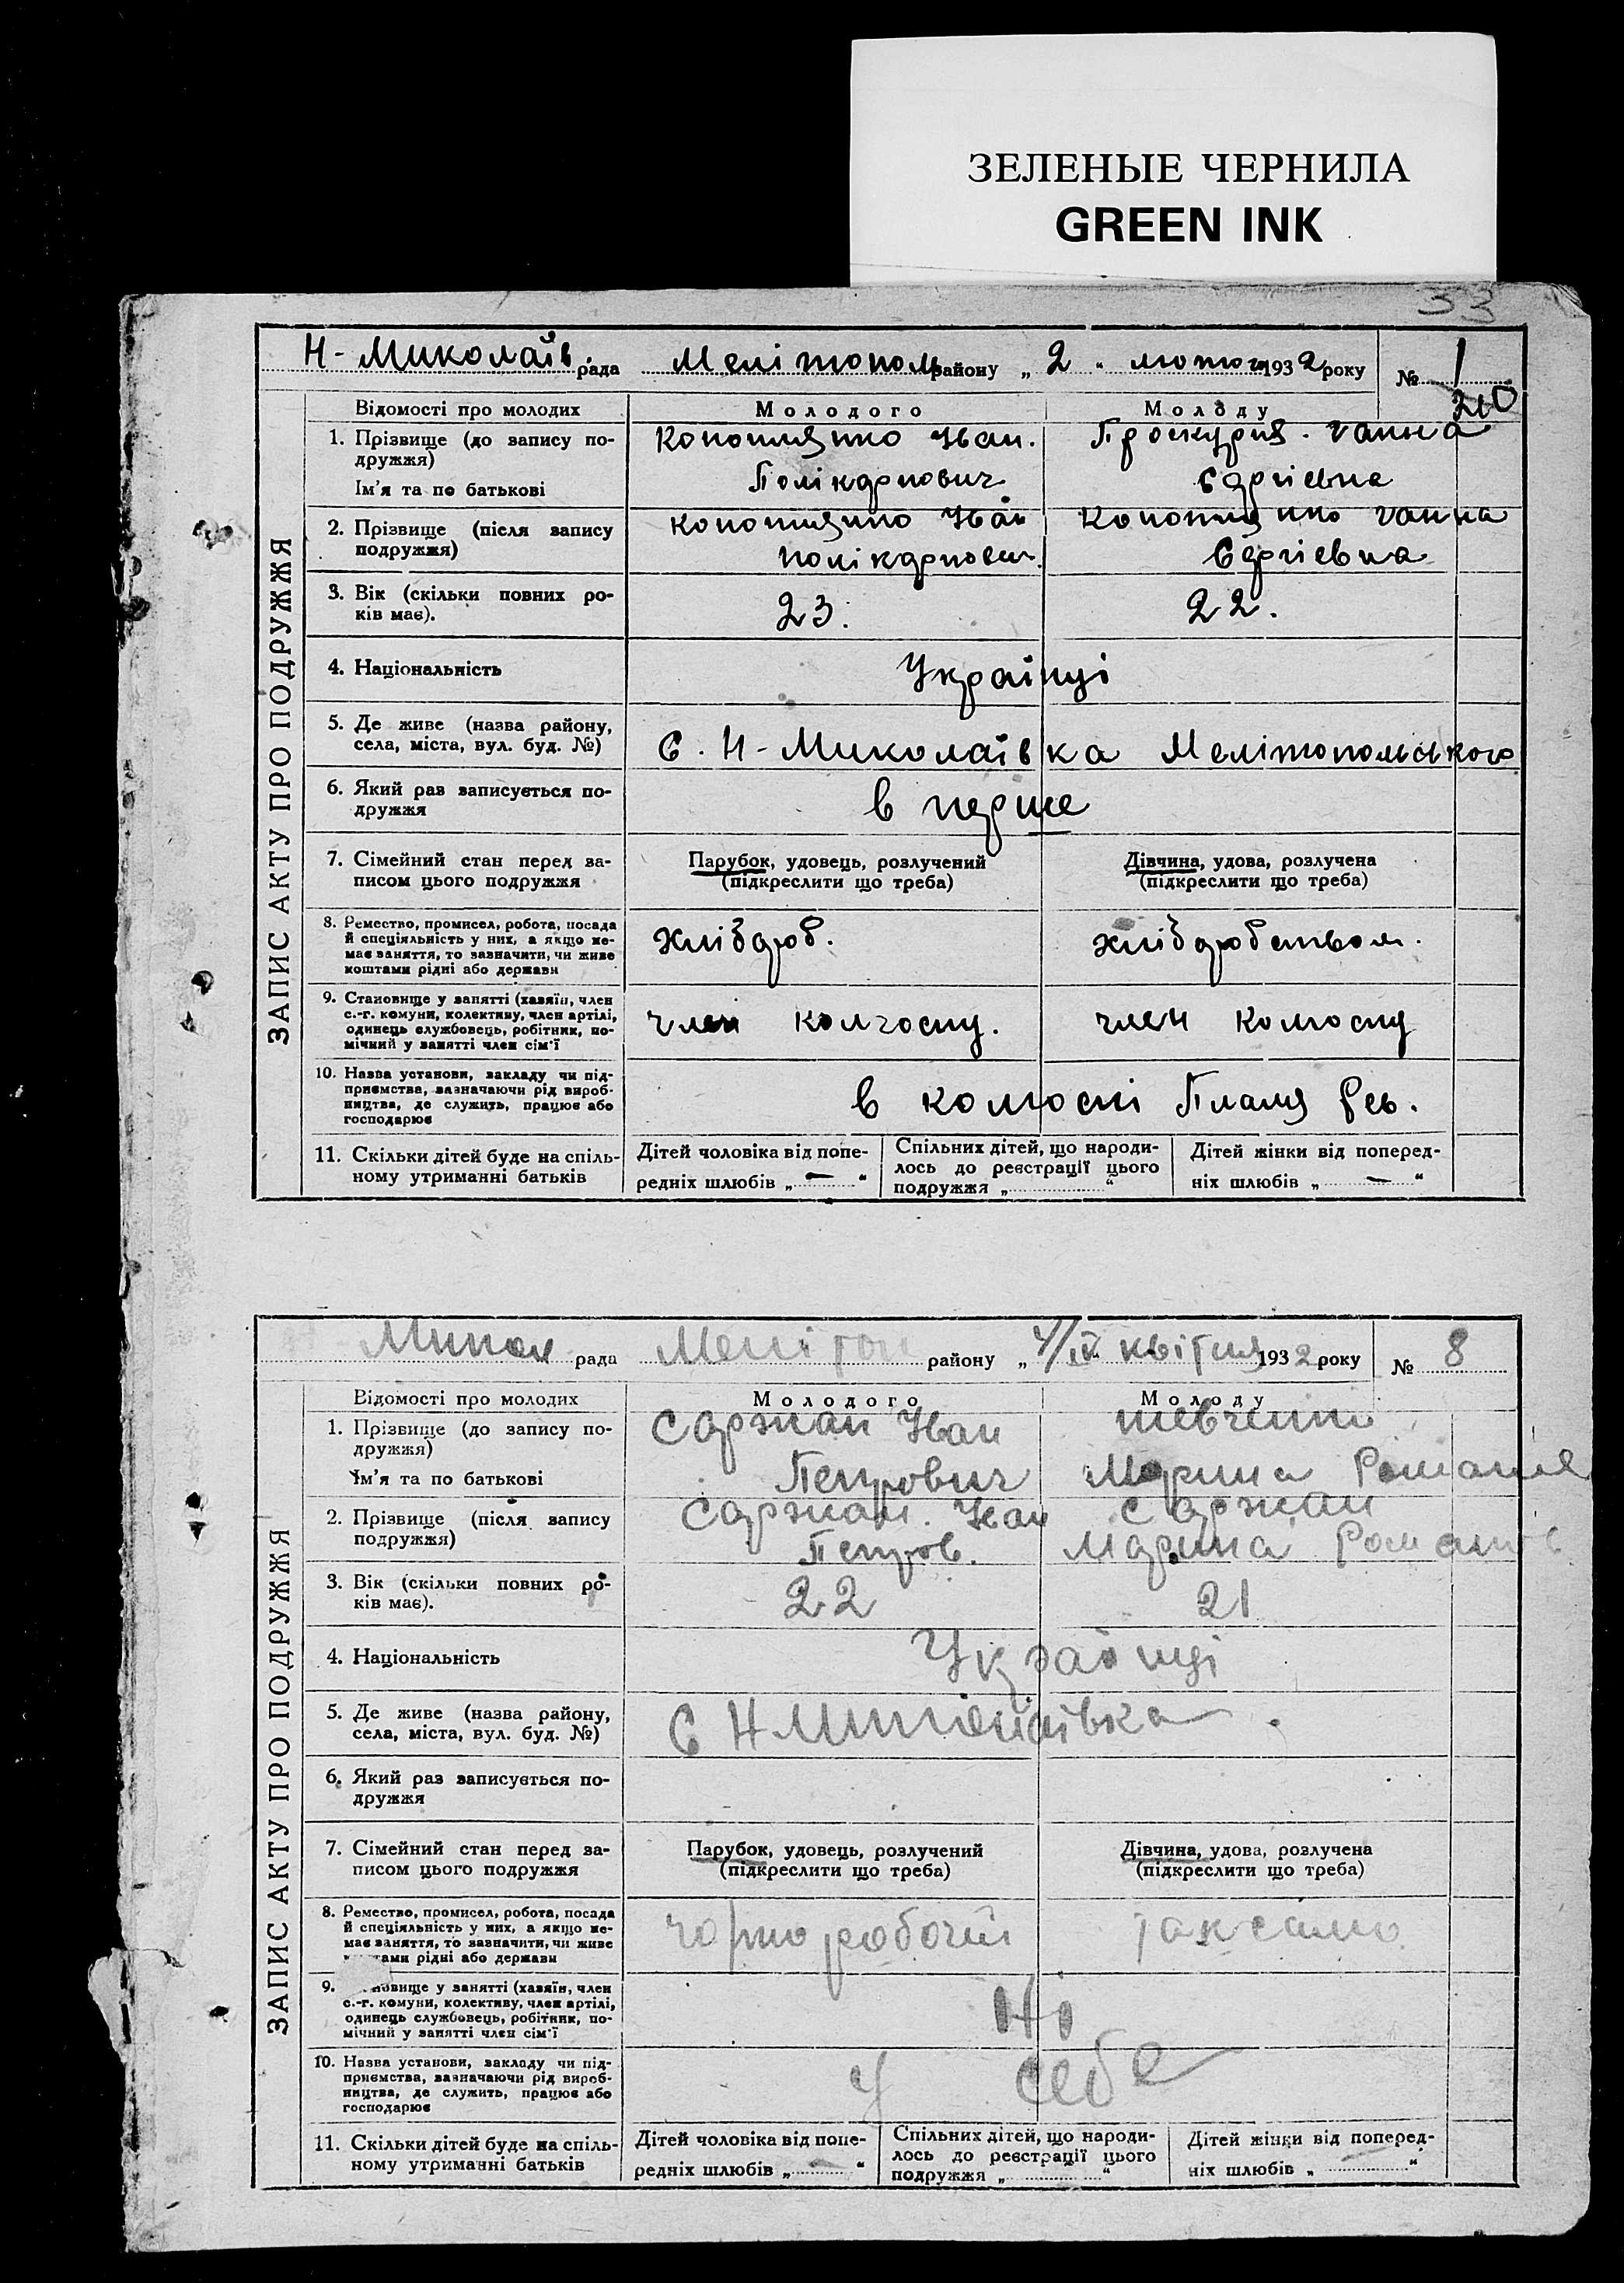 ЗЕЛЕНЫЕ ЧЕРНИЛА
GREEN INK
33
Н-Миколаїв. рада Мелітополь району „ 2 " лютого 1932 року № 1
210
ЗАПИС АКТУ ПРО ПОДРУЖЖЯ
Відомості про молодих Молодого Молоду
1. Прізвище (до запису по-
дружжя)
Ім'я та по батькові
Конопляно Іван.
Полікарпович
Проскурня. Ганна
Сергієвна
2. Прізвище (після запису
подружжя)
Конопляно Іван
Полікарпович.
Конопляно Ганна
Сергієвна
3. Вік (скільки повних ро-
ків має).
23. 22.
4. Національність
Українці
5. Де живе (назва району,
села, міста, вул. буд. №)
С. Н-Миколаївка Мелітопольского
6. Який раз записується по-
дружжя
в перше
7. Сімейний стан перед за-
писом цього подружжя
Парубок, удовець, розлучений
(підкреслити що треба)
Дівчина, удова, розлучена
(підкреслити що треба)
8. Ремество, промисел, робота, посада
й спеціяльність у них, а якщо не-
має заняття, то зазначити, чи живе
коштами рідні або держави
хлібороб. хліборобством.
9. Становище у занятті (хазяїн, член
с.-г. комуни, колективу, член артілі,
одинець службовець, робітник, по-
мічний у занятті член сім'ї
член колгоспу. член колгоспу
10. Назва установи, закладу чи під-
приємства, зазначаючи рід вироб-
ництва, де служить, працює або
господарює
в колгоспі Пламя Рев.
11. Скільки дітей буде на спіль-
ному утриманні батьків
Дітей чоловіка від попе-
редніх шлюбів „ — "
Спільних дітей, що народи-
лось до реєстрації цього
подружжя „ "
Дітей жінки від поперед-
ніх шлюбів „ — "
Микол рада Мелітоп району „ 4/IV " квітня 1932 року № 8
ЗАПИС АКТУ ПРО ПОДРУЖЖЯ
Відомості про молодих Молодого Молоду
1. Прізвище (до запису по-
дружжя)
Ім'я та по батькові
Саржан Іван
Петрович
Шевченко
Марина Романів
2. Прізвище (після запису
подружжя)
Саржан. Іван
Петров.
Саржан
Марина Романів
3. Вік (скільки повних ро-
ків має).
22 21
4. Національність
Українці
5. Де живе (назва району,
села, міста, вул. буд. №)
С Н Миколаївка
6. Який раз записується по-
дружжя
7. Сімейний стан перед за-
писом цього подружжя
Парубок, удовець, розлучений
(підкреслити що треба)
Дівчина, удова, розлучена
(підкреслити що треба)
8. Ремество, промисел, робота, посада
й спеціяльність у них, а якщо не-
має заняття, то зазначити, чи живе
тами рідні або держави
чорно робочий так само
9. новище у занятті (хазяїн, член
с.-г. комуни, колективу, член артілі,
одинець службовець, робітник, по-
мічний у занятті член сім'ї
Ні
10. Назва установи, закладу чи під-
приємства, зазначаючи рід вироб-
ництва, де служить, працює або
господарює
У себе
11. Скільки дітей буде на спіль-
ному утриманні батьків
Дітей чоловіка від попе-
редніх шлюбів „ — "
Спільних дітей, що народи-
лось до реєстрації цього
подружжя „ "
Дітей жінки від поперед-
ніх шлюбів „ — "